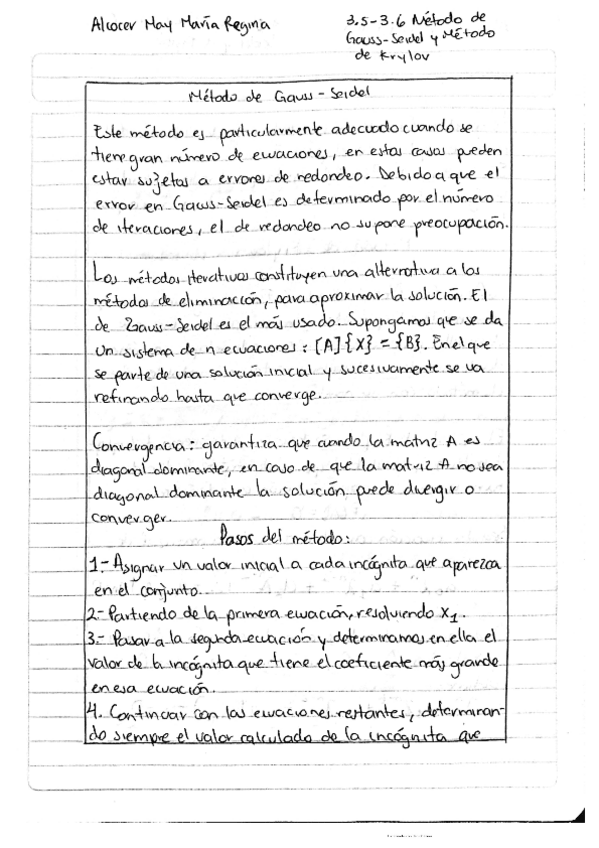 Alcocer May María Regina
3.5-3.6 Método de
Gauss-Seidel y Método
de Krylov
Método de Gauss-Seidel
Este método es particularmente adecuado cuando se
tiene gran número de ecuaciones, en estos casos pueden
estar sujetas a errores de redondeo. Debido a que el
error en Gauss-Seidel es determinado por el número
de iteraciones, el de redondeo no supone preocupación.
Los métodos iterativos constituyen una alternativa a los
métodos de eliminación, para aproximar la solución. El
de Gauss-Seidel es el más usado. Supongamos que se da
un sistema de n ecuaciones: [A]{X} = {B}. En el que
se parte de una solución inicial y sucesivamente se va
refinando hasta que converge.
Convergencia: garantiza que cuando la matriz A es
diagonal dominante, en caso de que la matriz A no sea
diagonal dominante la solución puede divergir o
converger.
Pasos del método:
1.- Asignar un valor inicial a cada incógnita que aparezca
en el conjunto.
2.- Partiendo de la primera ecuación, resolviendo X₁.
3.- Pasar a la segunda ecuación y determinamos en ella el
valor de la incógnita que tiene el coeficiente más grande
en esa ecuación.
4. Continuar con las ecuaciones restantes, determinan-
do siempre el valor calculado de la incógnita que